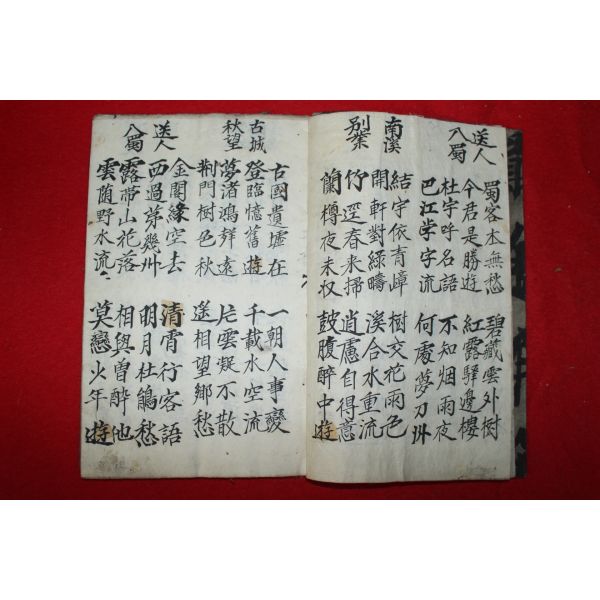 送人
入蜀
蜀客本無愁 碧藏雲外樹
今君是勝遊 紅露驛邊樓
杜宇呼名語 不知烟雨夜
巴江学字流 何處夢刀州
南溪
別業
結宇依青嶂 樹交花雨色
開軒對綠疇 溪合水重流
竹逕春来掃 逍慮自得意
蘭樽夜未収 鼓腹醉中遊
古城
秋望
古國遺墟在 一朝人事變
登臨憶舊遊 千載水空流
夢渚鴻聲遠 片雲凝不散
荆門樹色秋 遙相望鄉愁
送人
入蜀
金閣緣空去 清霄行客語
西過第幾州 明月杜鵑愁
露帶山花落 相與曽醉他
雲蔭野水流 莫戀少年遊